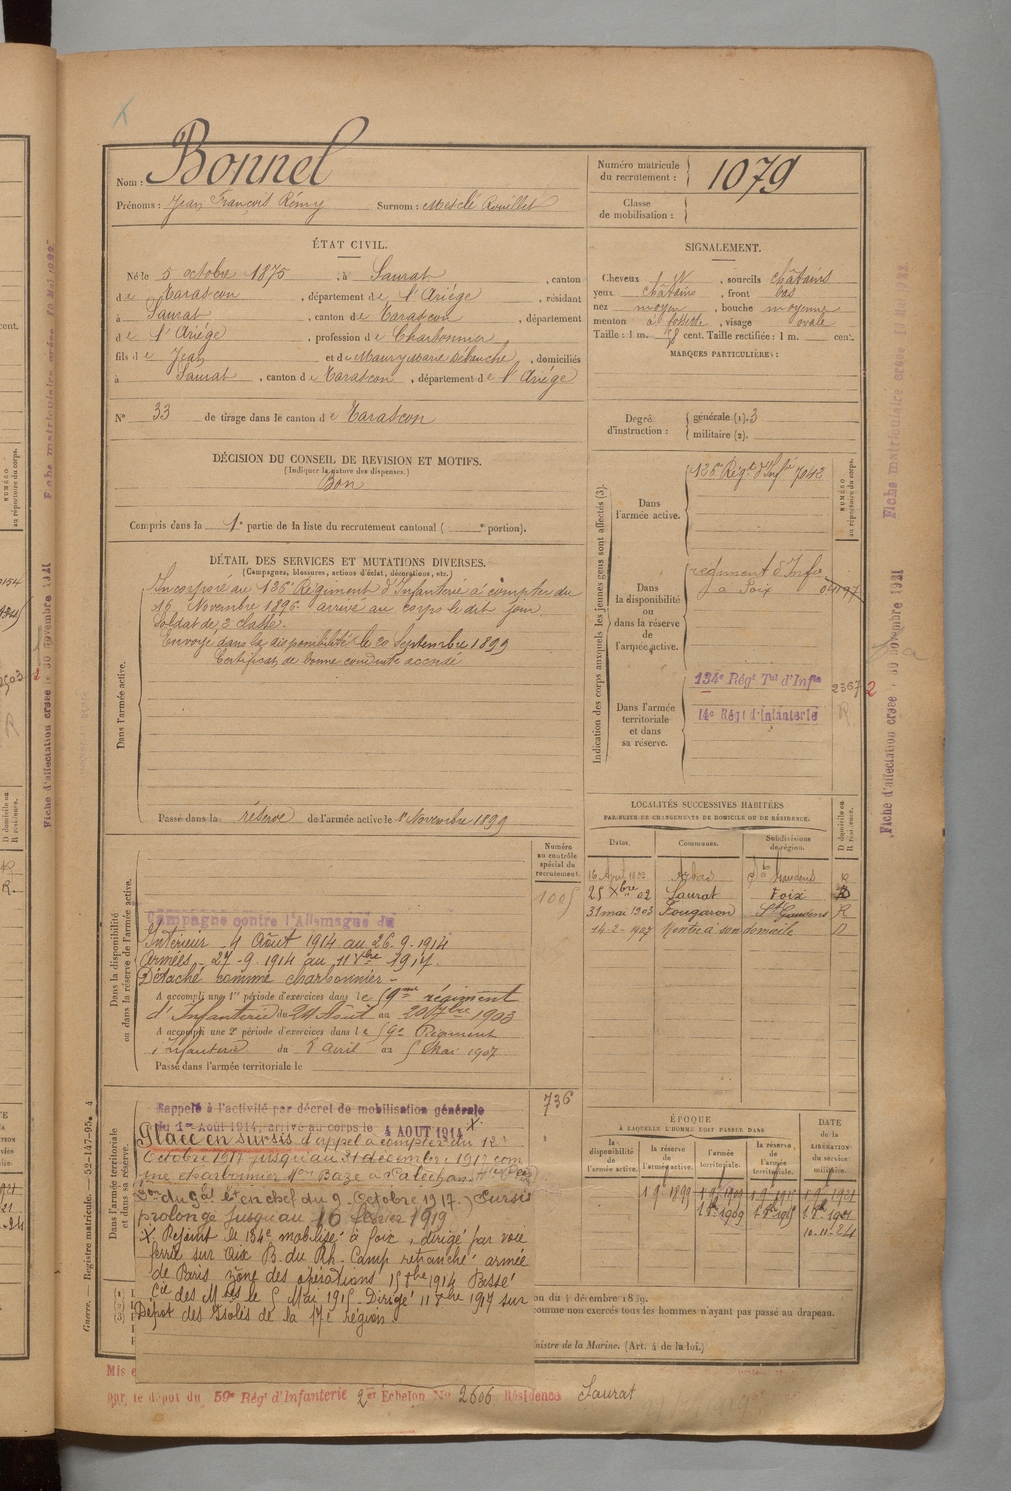 Nom : Bonnel
Prénoms : Jean François Rémy Surnom : Mesclé Rouillet
Numéro matricule du recrutement : 1079
Classe de mobilisation :
ÉTAT CIVIL.
Né le 5 octobre 1875, à Saurat, canton
de Tarascon, département de l'Ariége, résidant
à Saurat, canton de Tarascon, département
de l'Ariége, profession de Charbonnier
fils de Jean et de Maury Marie, domiciliés
à Saurat, canton de Tarascon, département de l'Ariége
No 33 de tirage dans le canton de Tarascon
SIGNALEMENT.
Cheveux, sourcils châtains
yeux châtains, front bas
nez moyen, bouche moyenne
menton à fossette, visage ovale
Taille : 1 m. cent. Taille rectifiée : 1 m. cent.
MARQUES PARTICULIÈRES :
Degré d'instruction : générale (1). 3
militaire (2).
DÉCISION DU CONSEIL DE REVISION ET MOTIFS.
(Indiquer la nature des dispenses.)
Bon
Compris dans la 1e partie de la liste du recrutement cantonal ( e portion).
DÉTAIL DES SERVICES ET MUTATIONS DIVERSES.
(Campagnes, blessures, actions d'éclat, décorations, etc.)
Dans l'armée active.
Incorporé au 126e Régiment d'Infanterie à compter du
16 Novembre 1896 arrivé au corps le dit jour
Soldat de 2e classe.
Envoyé dans la disponibilité le 20 Septembre 1899
Certificat de bonne conduite accordé
Passé dans la réserve de l'armée active le 1er Novembre 1899
Indication des corps auxquels les jeunes gens sont affectés (3).
NUMÉRO au répertoire du corps.
Dans l'armée active.
126e Régt d'Infie 7042
Dans la disponibilité ou dans la réserve de l'armée active.
régiment d'Infie
à Foix 04197
Dans l'armée territoriale et dans sa réserve.
134e Régt Tal d'Infie 2367 2
14e Régt d'Infanterie R
LOCALITÉS SUCCESSIVES HABITÉES
PAR SUITE DE CHANGEMENTS DE DOMICILE OU DE RÉSIDENCE.
Dates. Communes. Subdivisions de région. D domicile ou R résidence.
Arbas St Gaudens R
25 Xbre 02 Saurat Foix
31 mai 1903 Fougaron St Gaudens R
14-2-1907 Rentré à son domicile D
Dans la disponibilité ou dans la réserve de l'armée active.
Numéro au contrôle spécial du recrutement.
1005
Campagne contre l'Allemagne du
Intérieur - 4 Août 1914 au 26-9-1914
Armées - 27-9-1914 au
Détaché comme charbonnier -
A accompli une 1re période d'exercices dans le 59me régiment
d'Infanterie du 24 Août au 20 7bre 1903
A accompli une 2e période d'exercices dans le 59e Régiment
d'Infanterie du 8 avril au 5 Mai 1907
Passé dans l'armée territoriale le
Dans l'armée territoriale et dans sa réserve.
736
Rappelé à l'activité par décret de mobilisation générale
du 1er Août 1914, arrivé au corps le 4 AOUT 1914 X.
Placé en Sursis d'appel à compter du 12
Octobre 1917 jusqu'au 31 décembre 1917 comme
charbonnier Mon Baze à Salechan
du Gal Ct en chef du 9 Octobre 1917.) Sursis
prolongé jusqu'au 16 février 1919
X. Rejoint le 134e mobilisé à Foix, dirigé par voie
ferrée sur Aix B. du Rh. Camp retranché armée
de Paris zône des opérations 15 1914 Passé
Cie des Mses le 5 Mai 1915 Dirigé 11 1917 sur
Dépôt des Isolés de la 17e région
ÉPOQUE
À LAQUELLE L'HOMME DOIT PASSER DANS
la disponibilité de l'armée active. la réserve de l'armée active. l'armée territoriale. la réserve de l'armée territoriale.
DATE de la LIBÉRATION du service militaire.
1 9bre 1899 1 9bre 1909 1 9bre 1915 1 9bre 1921
1 8bre 1909 1 8bre 1915 1 8bre 1921
10-11-24
on du 4 décembre 1889.
comme non exercés tous les hommes n'ayant pas passé au drapeau.
nistre de la Marine. (Art. 4 de la loi.)
Mis e
par le dépôt du 59e Régt d'Infanterie 2er Echelon No 2606 Résidence Saurat
Guerre. — Registre matricule. — 52-147-95. 4
Fiche matriculaire créée 10 Mai 1922
Fiche d'affectation créée le 30 novembre 1921
Fiche matriculaire créée 10 Mai 1922
Fiche d'affectation créée le 30 novembre 1921